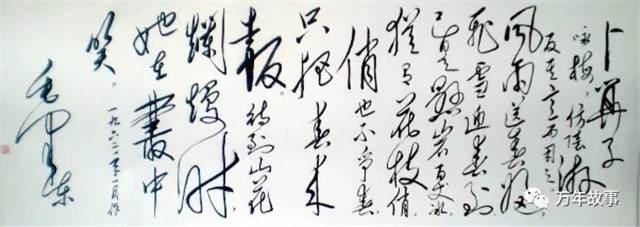 卜算子
咏梅，仿陆游
反其意而用之。
风雨送春归
飞雪迎春到
已是懸岩百丈冰
犹有花枝俏。
俏也不争春
只把春来
报。待到山花
爛熳时
她在叢中
笑。
一九六二年一月作
毛泽东
万年故事